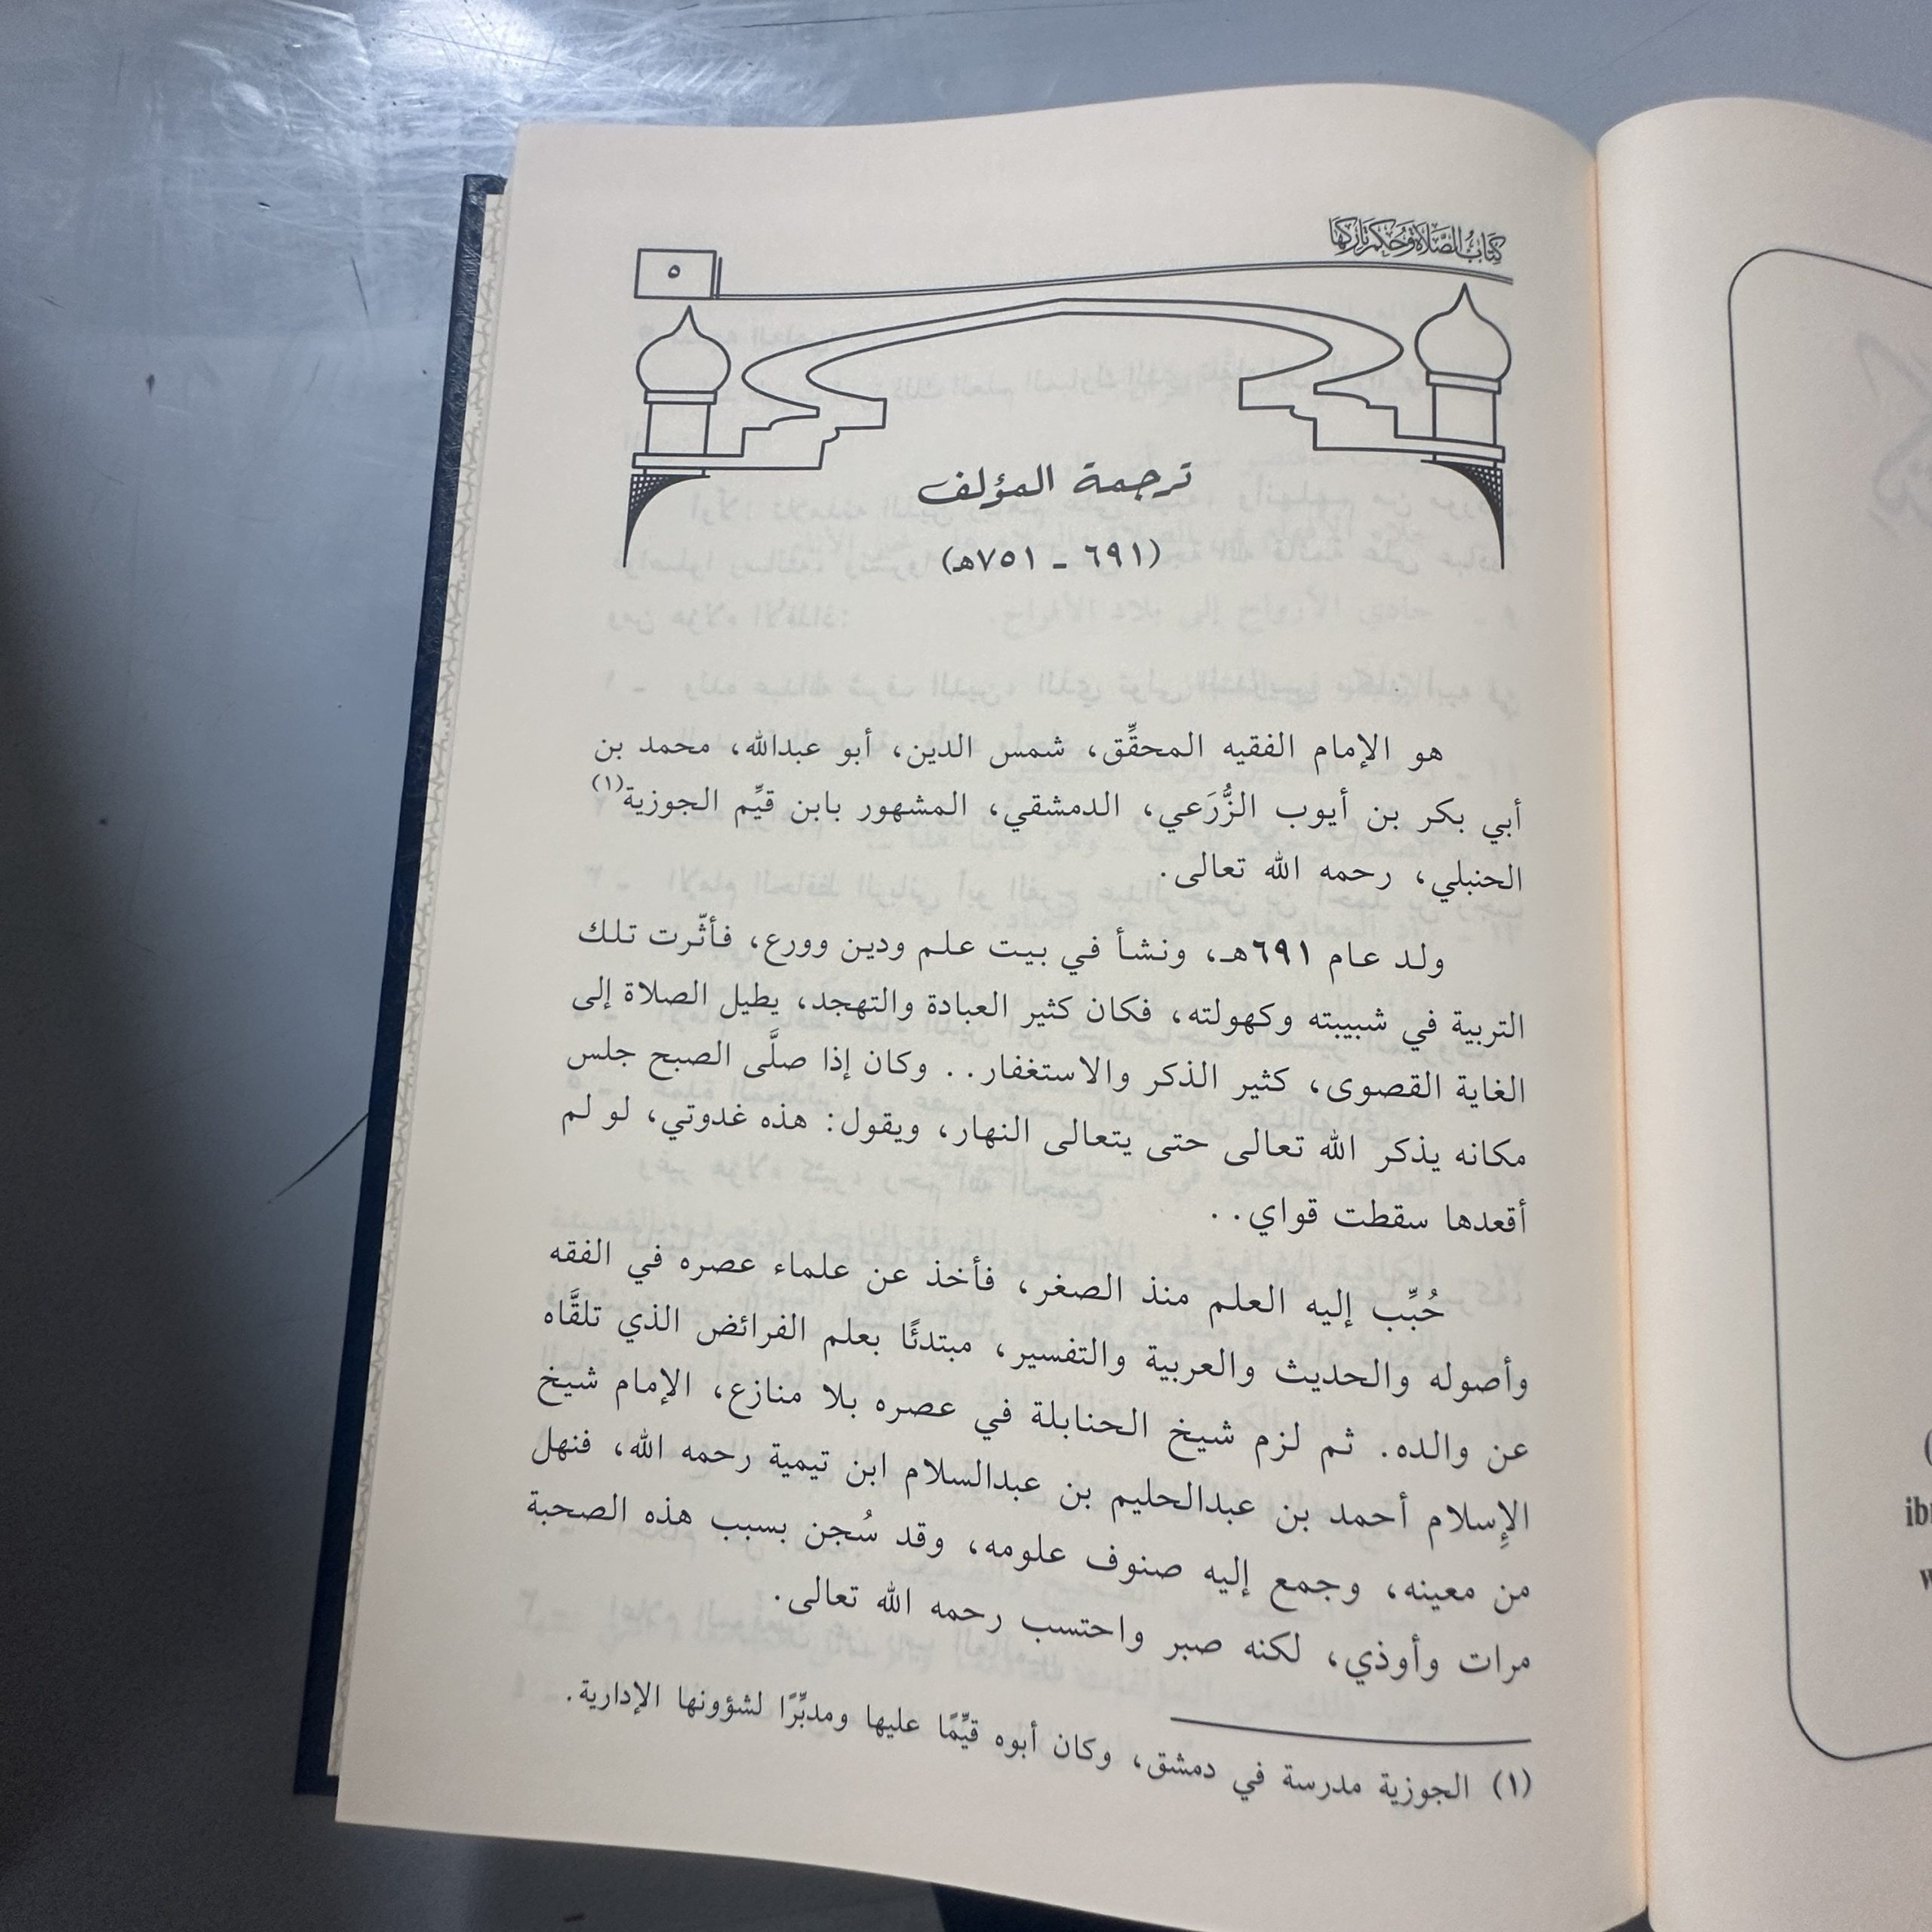 كتاب الصلاة وحكم تاركها
٥
ترجمة المؤلف
(٦٩١ - ٧٥١هـ)
هو الإمام الفقيه المحقِّق، شمس الدين، أبو عبدالله، محمد بن
أبي بكر بن أيوب الزُّرَعي، الدمشقي، المشهور بابن قيِّم الجوزية(١)
الحنبلي، رحمه الله تعالى.
ولد عام ٦٩١هـ، ونشأ في بيت علم ودين وورع، فأثّرت تلك
التربية في شبيبته وكهولته، فكان كثير العبادة والتهجد، يطيل الصلاة إلى
الغاية القصوى، كثير الذكر والاستغفار.. وكان إذا صلَّى الصبح جلس
مكانه يذكر الله تعالى حتى يتعالى النهار، ويقول: هذه غدوتي، لو لم
أقعدها سقطت قواي..
حُبِّب إليه العلم منذ الصغر، فأخذ عن علماء عصره في الفقه
وأصوله والحديث والعربية والتفسير، مبتدئًا بعلم الفرائض الذي تلقَّاه
عن والده. ثم لزم شيخ الحنابلة في عصره بلا منازع، الإمام شيخ
الإسلام أحمد بن عبدالحليم بن عبدالسلام ابن تيمية رحمه الله، فنهل
من معينه، وجمع إليه صنوف علومه، وقد سُجن بسبب هذه الصحبة
مرات وأوذي، لكنه صبر واحتسب رحمه الله تعالى.
(١) الجوزية مدرسة في دمشق، وكان أبوه قيِّمًا عليها ومدبِّرًا لشؤونها الإدارية.